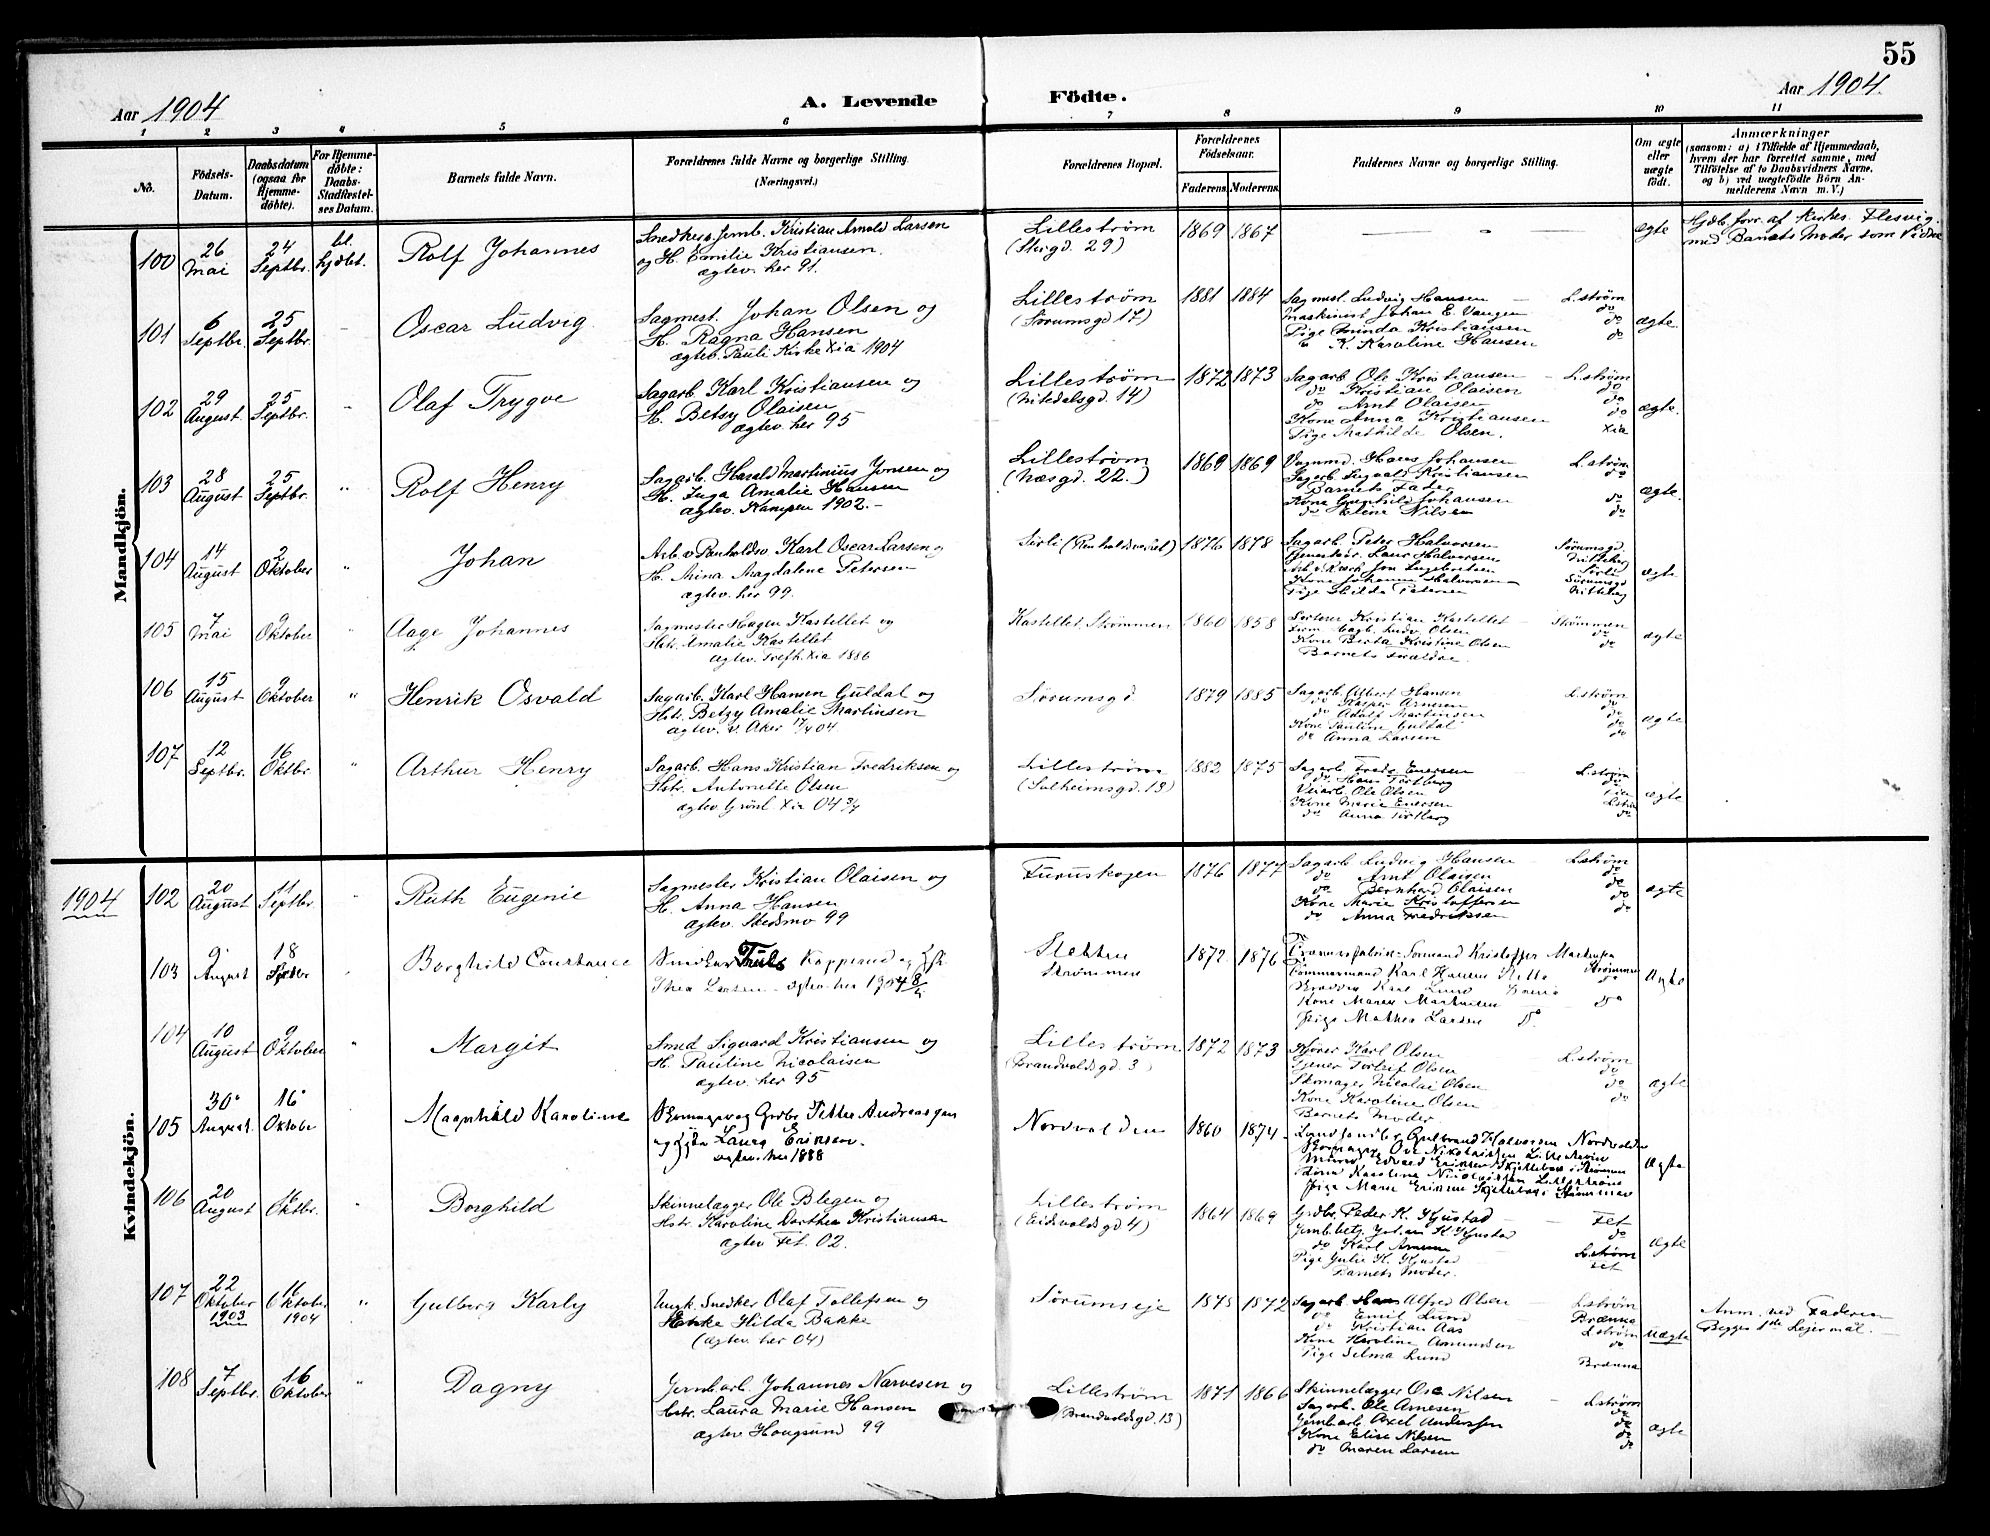 55
Aar 1904
A. Levende Födte.
Aar 1904.
1 2 3 4 5 6 7 8 9 10 11
No.
Födsels-Datum.
Daabsdatum (ogsaa for Hjemme-döbte).
For Hjemme-döbte: Daabs-Stadfæstel-ses Datum.
Barnets fulde Navn.
Forældrenes fulde Navne og borgerlige Stilling.
(Næringsvei.)
Forældrenes Bopæl.
Forældrenes Födselsaar.
Faderens. Moderens.
Faddernes Navne og borgerlige Stilling.
Om ægte eller uægte födt.
Anmærkninger
(saasom: a) i Tilfælde af Hjemmedaab, hvem der har forrettet samme, med Tilföielse af to Daabsvidners Navne, og b) ved uægtefödte Börn An-melderens Navn m. V.)
Mandkjön.
100 26 Mai 24 Septbr. bl. hjdbt. Rolf Johannes
Kristian Arnold Larsen
og H. Emilie Kristiansen.
ægtev. her 91.
Lilleström
(Storgd. 29)
1869 1867 ægte
Hjdb. forr. af Kirkes. Flesvig
med Barnets Moder som Vidne
101 6 Septbr. 25 Septbr. Oscar Ludvig.
Sagmest. Johan Olsen og
H. Ragna Hansen
ægtev. Pauli Kirke Xia 1904
Lilleström
(Sörumsgd 17)
1881 1884
Sagmest. Ludvig Hansen L.ström
Maskinist Johan E. Vangen do
Pige Kristiansen do
K. Karoline Hansen do
ægte.
102 29 August 25 Septbr. Olaf Trygve
Sagarb. Karl Kristiansen og
H. Betsy Olaisen
ægtev. her 95
Lilleström
(Nitedalsgd. 14)
1872 1873
Sagarb. Ole Kristiansen L.ström
do Kristian Olaisen do
do Arnt Olaisen do
Kone Anna Kristiansen do
Pige Mathilde Olsen. Xia
ægte.
103 28 August 25 Septbr. Rolf Henry
Sagarb. Harald Martinius Jonsen og
H. Inga Amalie Hansen
ægtev. Kampen 1902.
Lilleström
(Næsgd. 22.)
1869 1869
Vognmd. Hans Johansen L.ström
Sagarb. Sigvald Kristiansen do
Barnets Fader
Kone Gunhild Johansen do
do Eline Nilsen do
ægte.
104 14 August 2 Oktober Johan
Karl Oscar Larsen og
H. Anna Magdalene Petersen
ægtev. her 99.
1876 1878
Sagarb. Peter Halvorsen Sörumsgd.
Kone Johanne Halvorsen Sörumsgd
Pige Hilda Petersen
ægte
105 7 Mai 9 Oktober Aage Johannes
Sagmester Hagen Kastellet og
Hstr. Amalie Kastellet
ægtev. Trefk. Xia 1886
Kastellet Strømmen 1860 1858
Kristian Kastellet Strømmen
Ludv. Olsen do
Kone Berta Kristine Olsen do
Barnets Forældre.
ægte.
106 15 August 9 Oktober Henrik Osvald
Sagarb. Karl Hansen Guldal og
Hstr. Betzy Amalie Martinsen
ægtev. V. Aker 17/4 04.
Sörumsgd
1879 1885
Sagarb. Albert Hansen L.ström
do Kasper Arnesen do
do Adolf Martinsen do
Kone Pauline Guldal do
do Anna Larsen do
ægte
107 12 Septbr. 16 Oktbr. Arthur Henry
Sagarb. Hans Kristian Fredriksen og
Hstr. Antonette Olsen
ægtev. Grönl. Xia 04 3/7
Lilleström
(Solheimsgd. 13)
1882 1875
Sagarb. Fredr. Enersen L.ström
do Hans Törtberg do
Veiarb. Ole Olsen
Kone Marie Enersen L.ström
do Anna Törtberg do
ægte
1904
Kvindekjön.
102 20 August 11 Septbr. Ruth Eugenie
Sagmester Kristian Olaisen og
H. Anna Hansen
ægtev. Skedsmo 99
Furuskogen
1876 1877
Sagarb. Ludvig Hansen L.ström
do Arnt Olaisen do
do Bernhard Olaisen do
Kone Marie Kristoffersen do
do Anna Fredriksen do
ægte
103 9 August 18 Septbr Borghild Constance
Kopperud og
Thea Larsen
Sletten
Strømmen
1872 1876
Tømmermand Karl Hansen
Kone Maren Markusen do
Pige Mathea Larsen do
Ægte
104 10 August 9 Oktober Margit
Smed Sigvard Kristiansen og
H. Pauline Nicolaisen
ægtev. her 95
Lilleström
(Brandvoldsgd. 3)
1872 1873
Kjører Karl Olsen L.ström
Torleif Olsen do
Skomager Nicolai Olsen do
Kone Karoline Olsen do
Barnets Moder
ægte
105 30 August. 16 Oktober Magnhild Karoline
Skomager og Grdbr Petter Andreassen
og Laura Eriksen.
ægtev. her 1888
Nordvolden
1860 1874
Gulbrand Halvorsen Nordvolden
Skomager Ove Nikolaissen Lillestrøm
Edvard Eriksen
Kone Karoline Nicolaissen Lillestrøm
Pige Marie Eriksen
Ægte
106 20 August 16 Oktbr. Borghild
Skinnelægger Ole Blegen og
Hstr. Karoline Dorthea Kristiansen
ægtev. Fet. 02.
Lilleström
(Eidsvoldsgd 4)
1864 1869
Grdbr. Peder K. Kjustad Fet
Jernb.betj. Johan K. Kjustad do
do Karl L.ström
Pige Julie K. Kjustad Fet
Barnets Moder.
Ægte
107 22 Oktober 1903 16 Oktober 1904 Gulborg Karly
Ungk. Snedker Olaf Tollefsen og
Hilda Bakke
(ægtev. her 04)
Sörumseie
1875 1872
Sagarb. Hans Alfred Olsen L.ström
do Emil Lund Brænna
do Kristian Aas L.ström
Kone Karoline Amundsen do
Pige Selma Lund Brænna
Uægte
Anm. ved Faderen
Begges 1ste Leiermål.
108 7 Septbr. 16 Oktober Dagny
Jernb.arb. Johannes Narvesen og
Hstr. Laura Marie Hansen
ægtev. Haugsund 99
Lilleström
(Brandvoldsgd. 13)
1871 1866
Skinnelægger Ove Nilsen L.ström
Sagarb. Ole Arnesen do
Jernb.arb. Axel Anderssen do
Kone Elise Nilsen do
do Maren Larsen do
ægte